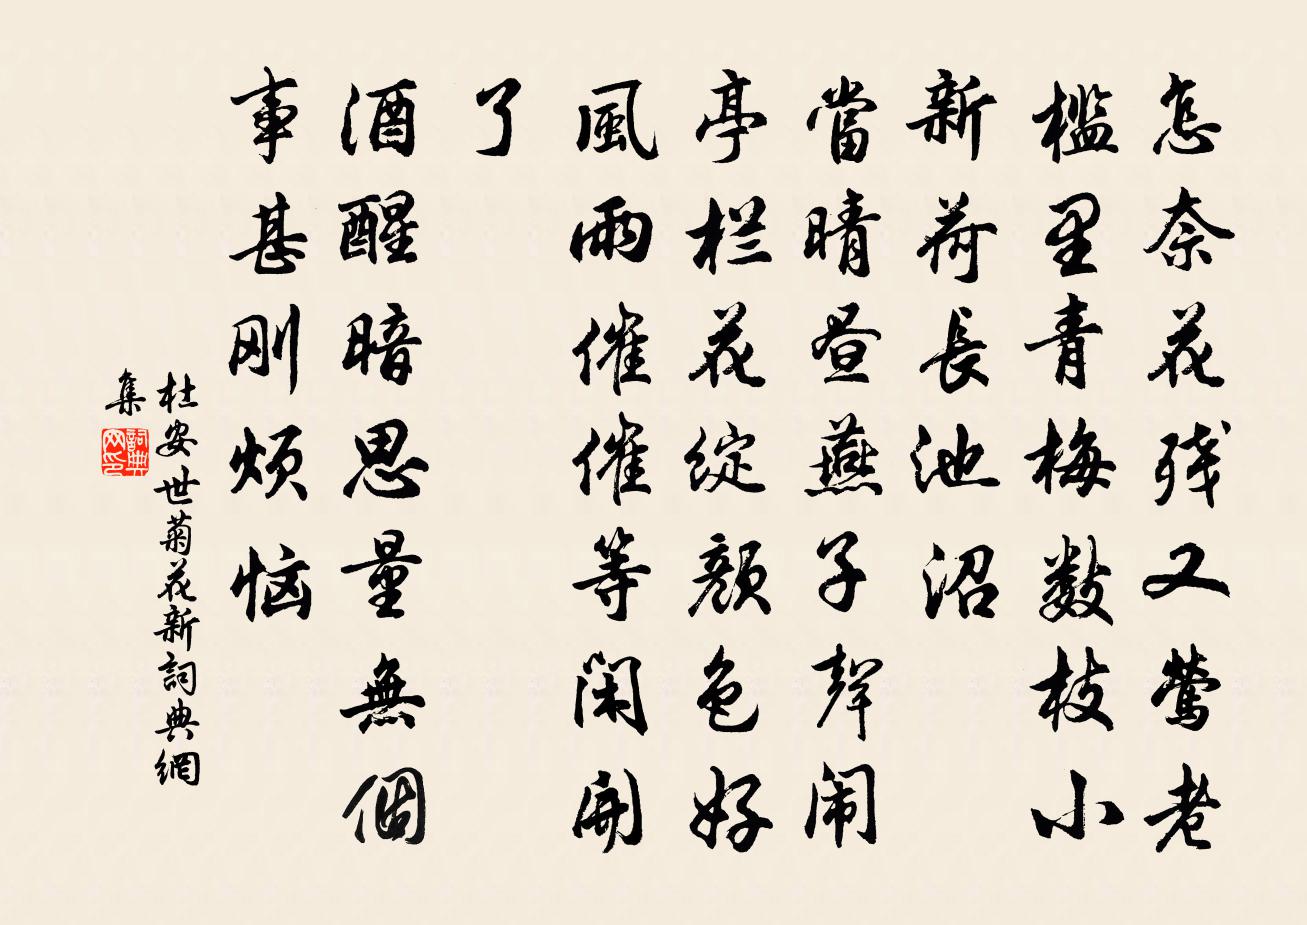 怎奈花残又莺老
槛里青梅数枝小
新荷長池沼
當晴昼燕子聲闹
亭栏花绽颜色好
風雨催催等闲開
了
酒醒暗思量無個
事甚刚烦恼
杜安世菊花新詞典網
集
詞典网印